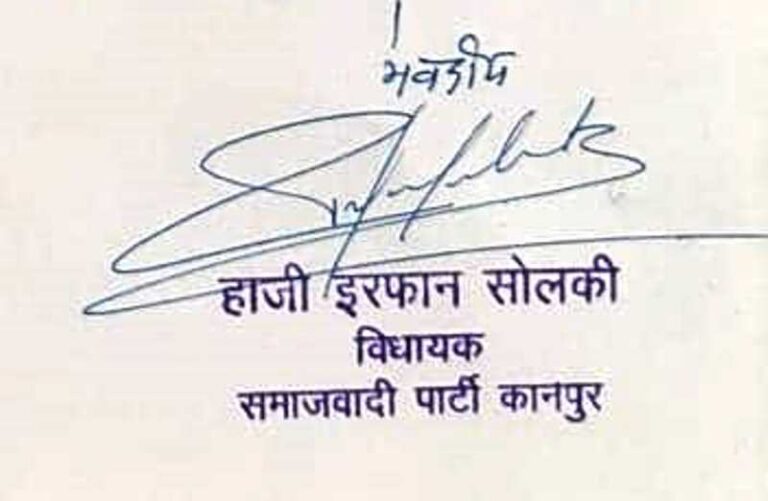 भवदीय
हाजी इरफान सोलकी
विधायक
समाजवादी पार्टी कानपुर